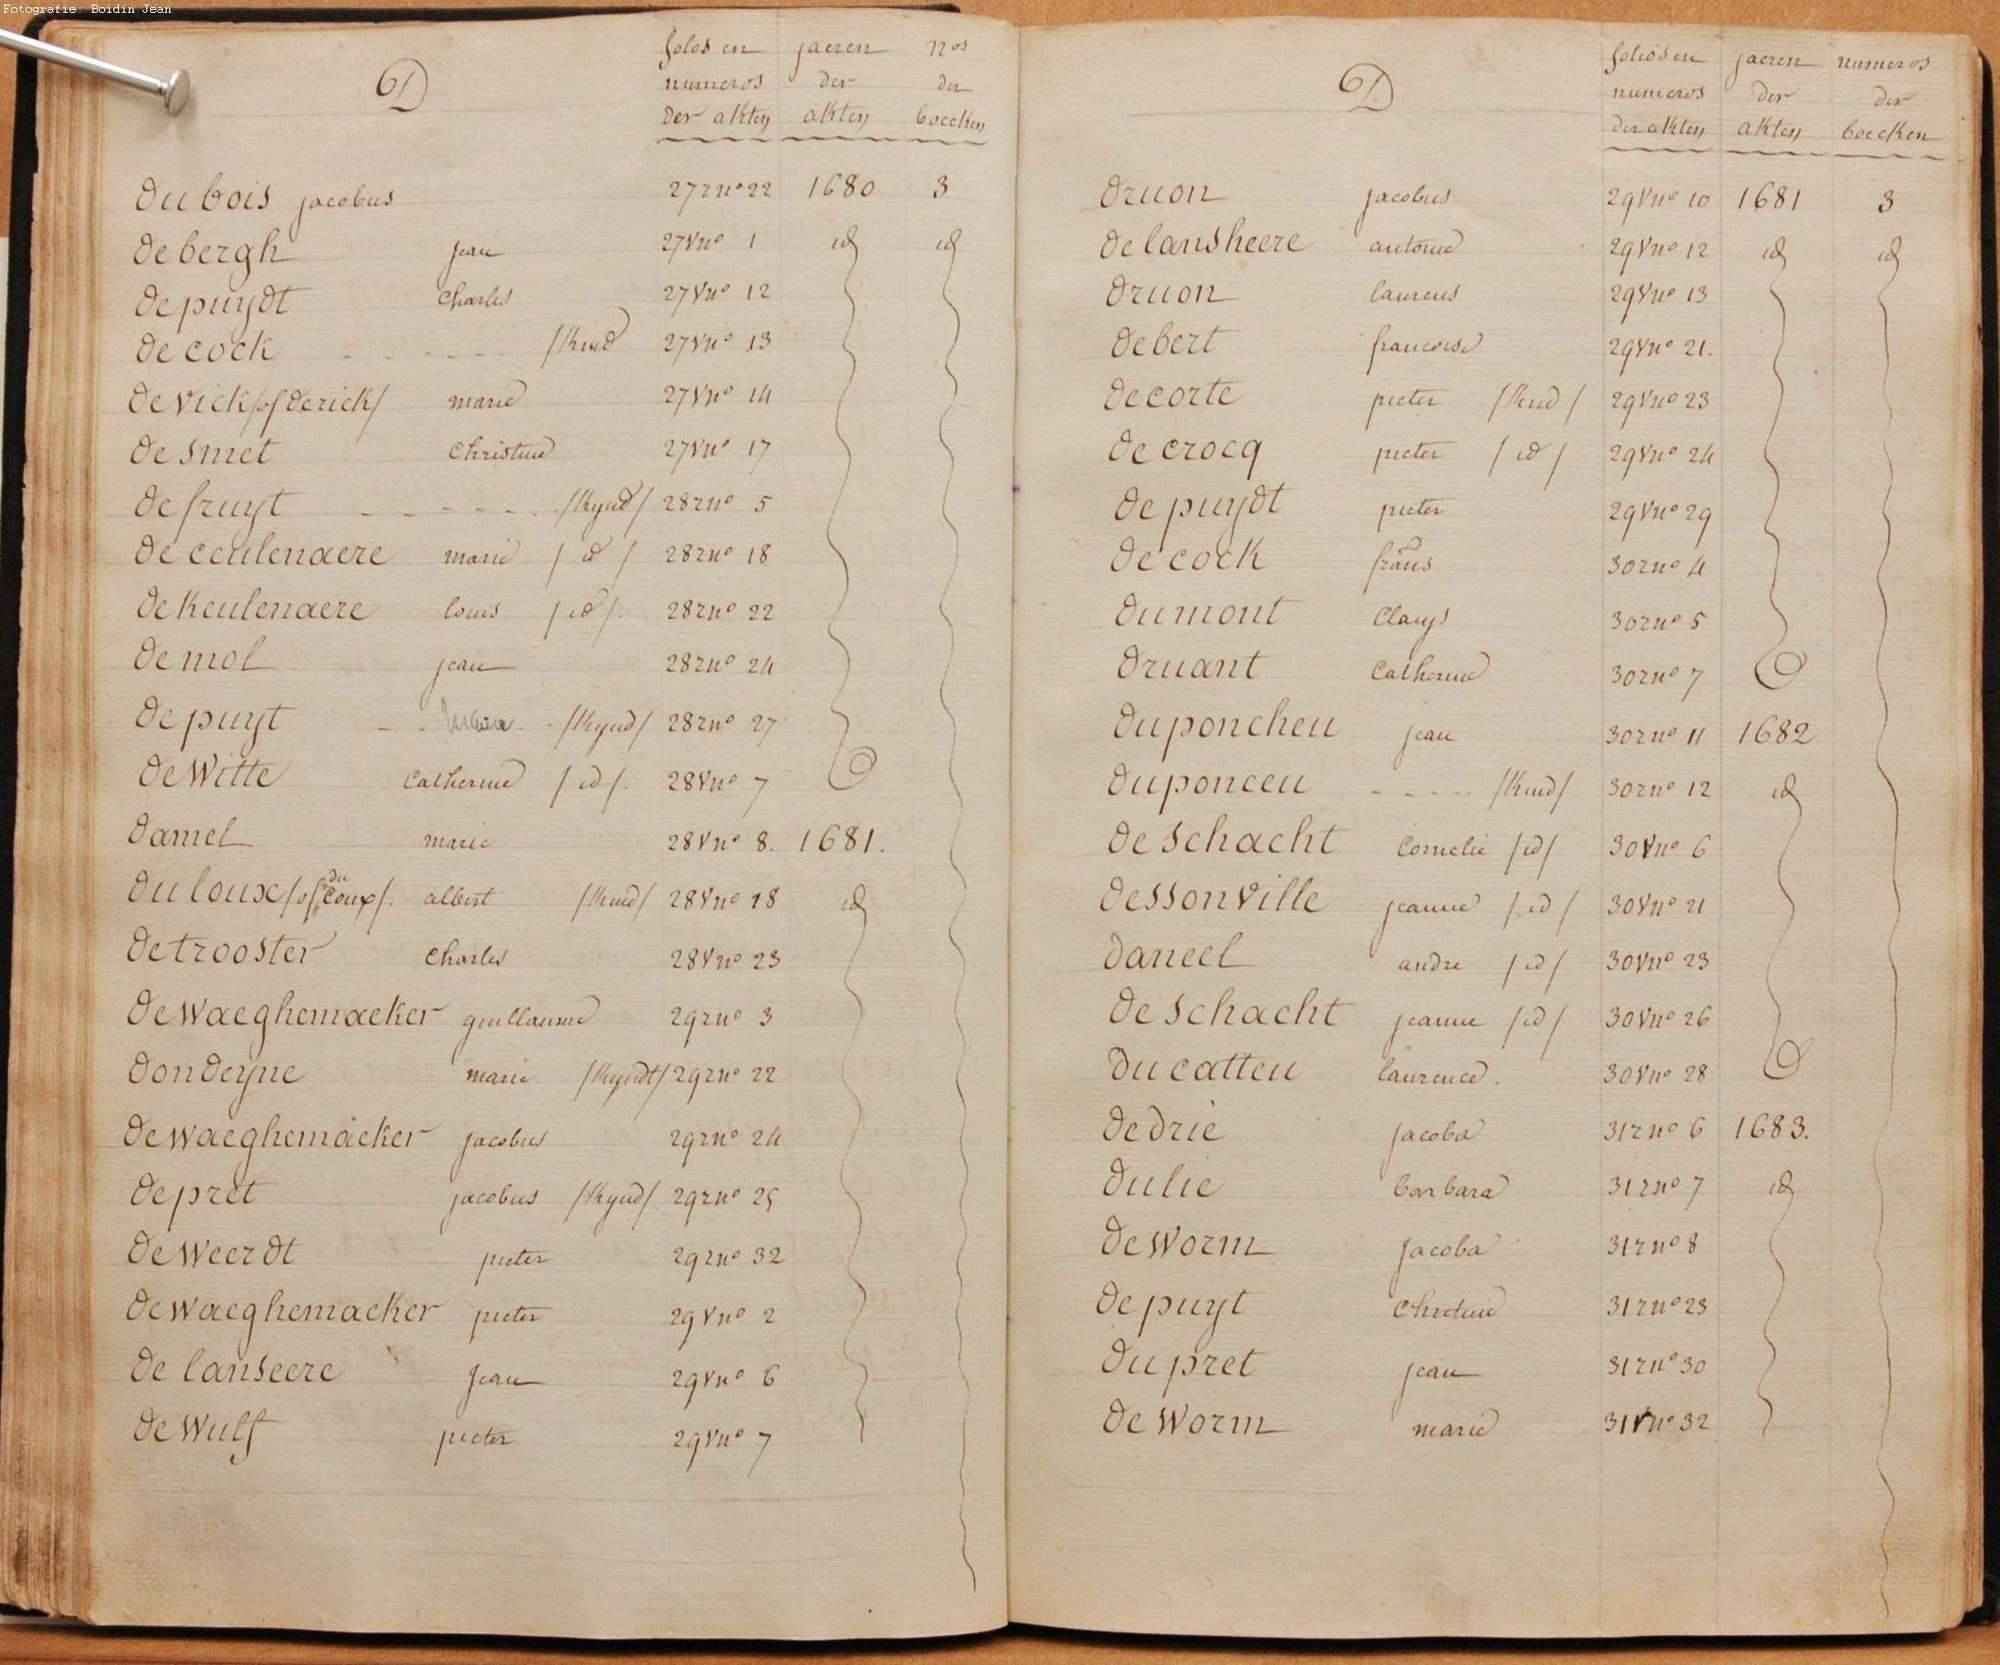 Fotografie: Boidin Jean
D
folos en jaeren nos
numeros der der
der akten akten boecken
du bois jacobus 27r no 22 1680 3
de bergh jean 27v no 1 id id
de puydt charles 27v no 12
de cock - - - - - /kind 27v no 13
de vick /of derick/ marie 27v no 14
de smet christine 27v no 17
de fruyt - - - - - - /kynd/ 28r no 5
de ceulenaere marie / id / 28r no 18
de keulenaere louis / id /. 28r no 22
de mol jean 28r no 24
de puyt - - - /kynd/ 28r no 27
de witte catherine / id /. 28v no 7
damel marie 28v no 8. 1681.
du loux /of du coux/. albert /kind/ 28v no 18 id
de trooster charles 28v no 23
de waeghemaeker guillaume 29r no 3
dondeyne marie /kyndt/ 29r no 22
de waeghemaeker jacobus 29r no 24
de pret jacobus /kynd/ 29r no 25
de weerdt pieter 29r no 32
de waeghemaeker pieter 29v no 2
de lanseere jean 29v no 6
de wulf pieter 29v no 7
D.
folios en jaeren numeros
numeros der der
der akten akten boecken
druon jacobus 29v no 10 1681 3
de lansheere antoine 29v no 12 id id
druon laurens 29v no 13
de bert francoise 29v no 21.
de corte pieter /kind/ 29v no 23
de crocq pieter / id / 29v no 24
de puydt pieter 29v no 29
de cock frans 30r no 4
du mont clauys 30r no 5
druant catherine 30r no 7
du poncheu jean 30r no 11 1682
du ponceu - - - - - /kind/ 30r no 12 id
de schacht cornelie /id/ 30v no 6
dessonville jeanne / id / 30v no 21
daneel andre /id/ 30v no 23
de schacht jeanne /id/ 30v no 26
du catteu laurence. 30v no 28
de drie jacoba 31r no 6 1683.
dulie barbara 31r no 7 id
de worm jacoba 31r no 8
de puyt chretine 31r no 23
du pret jean 31r no 30
de worm marie 31v no 32